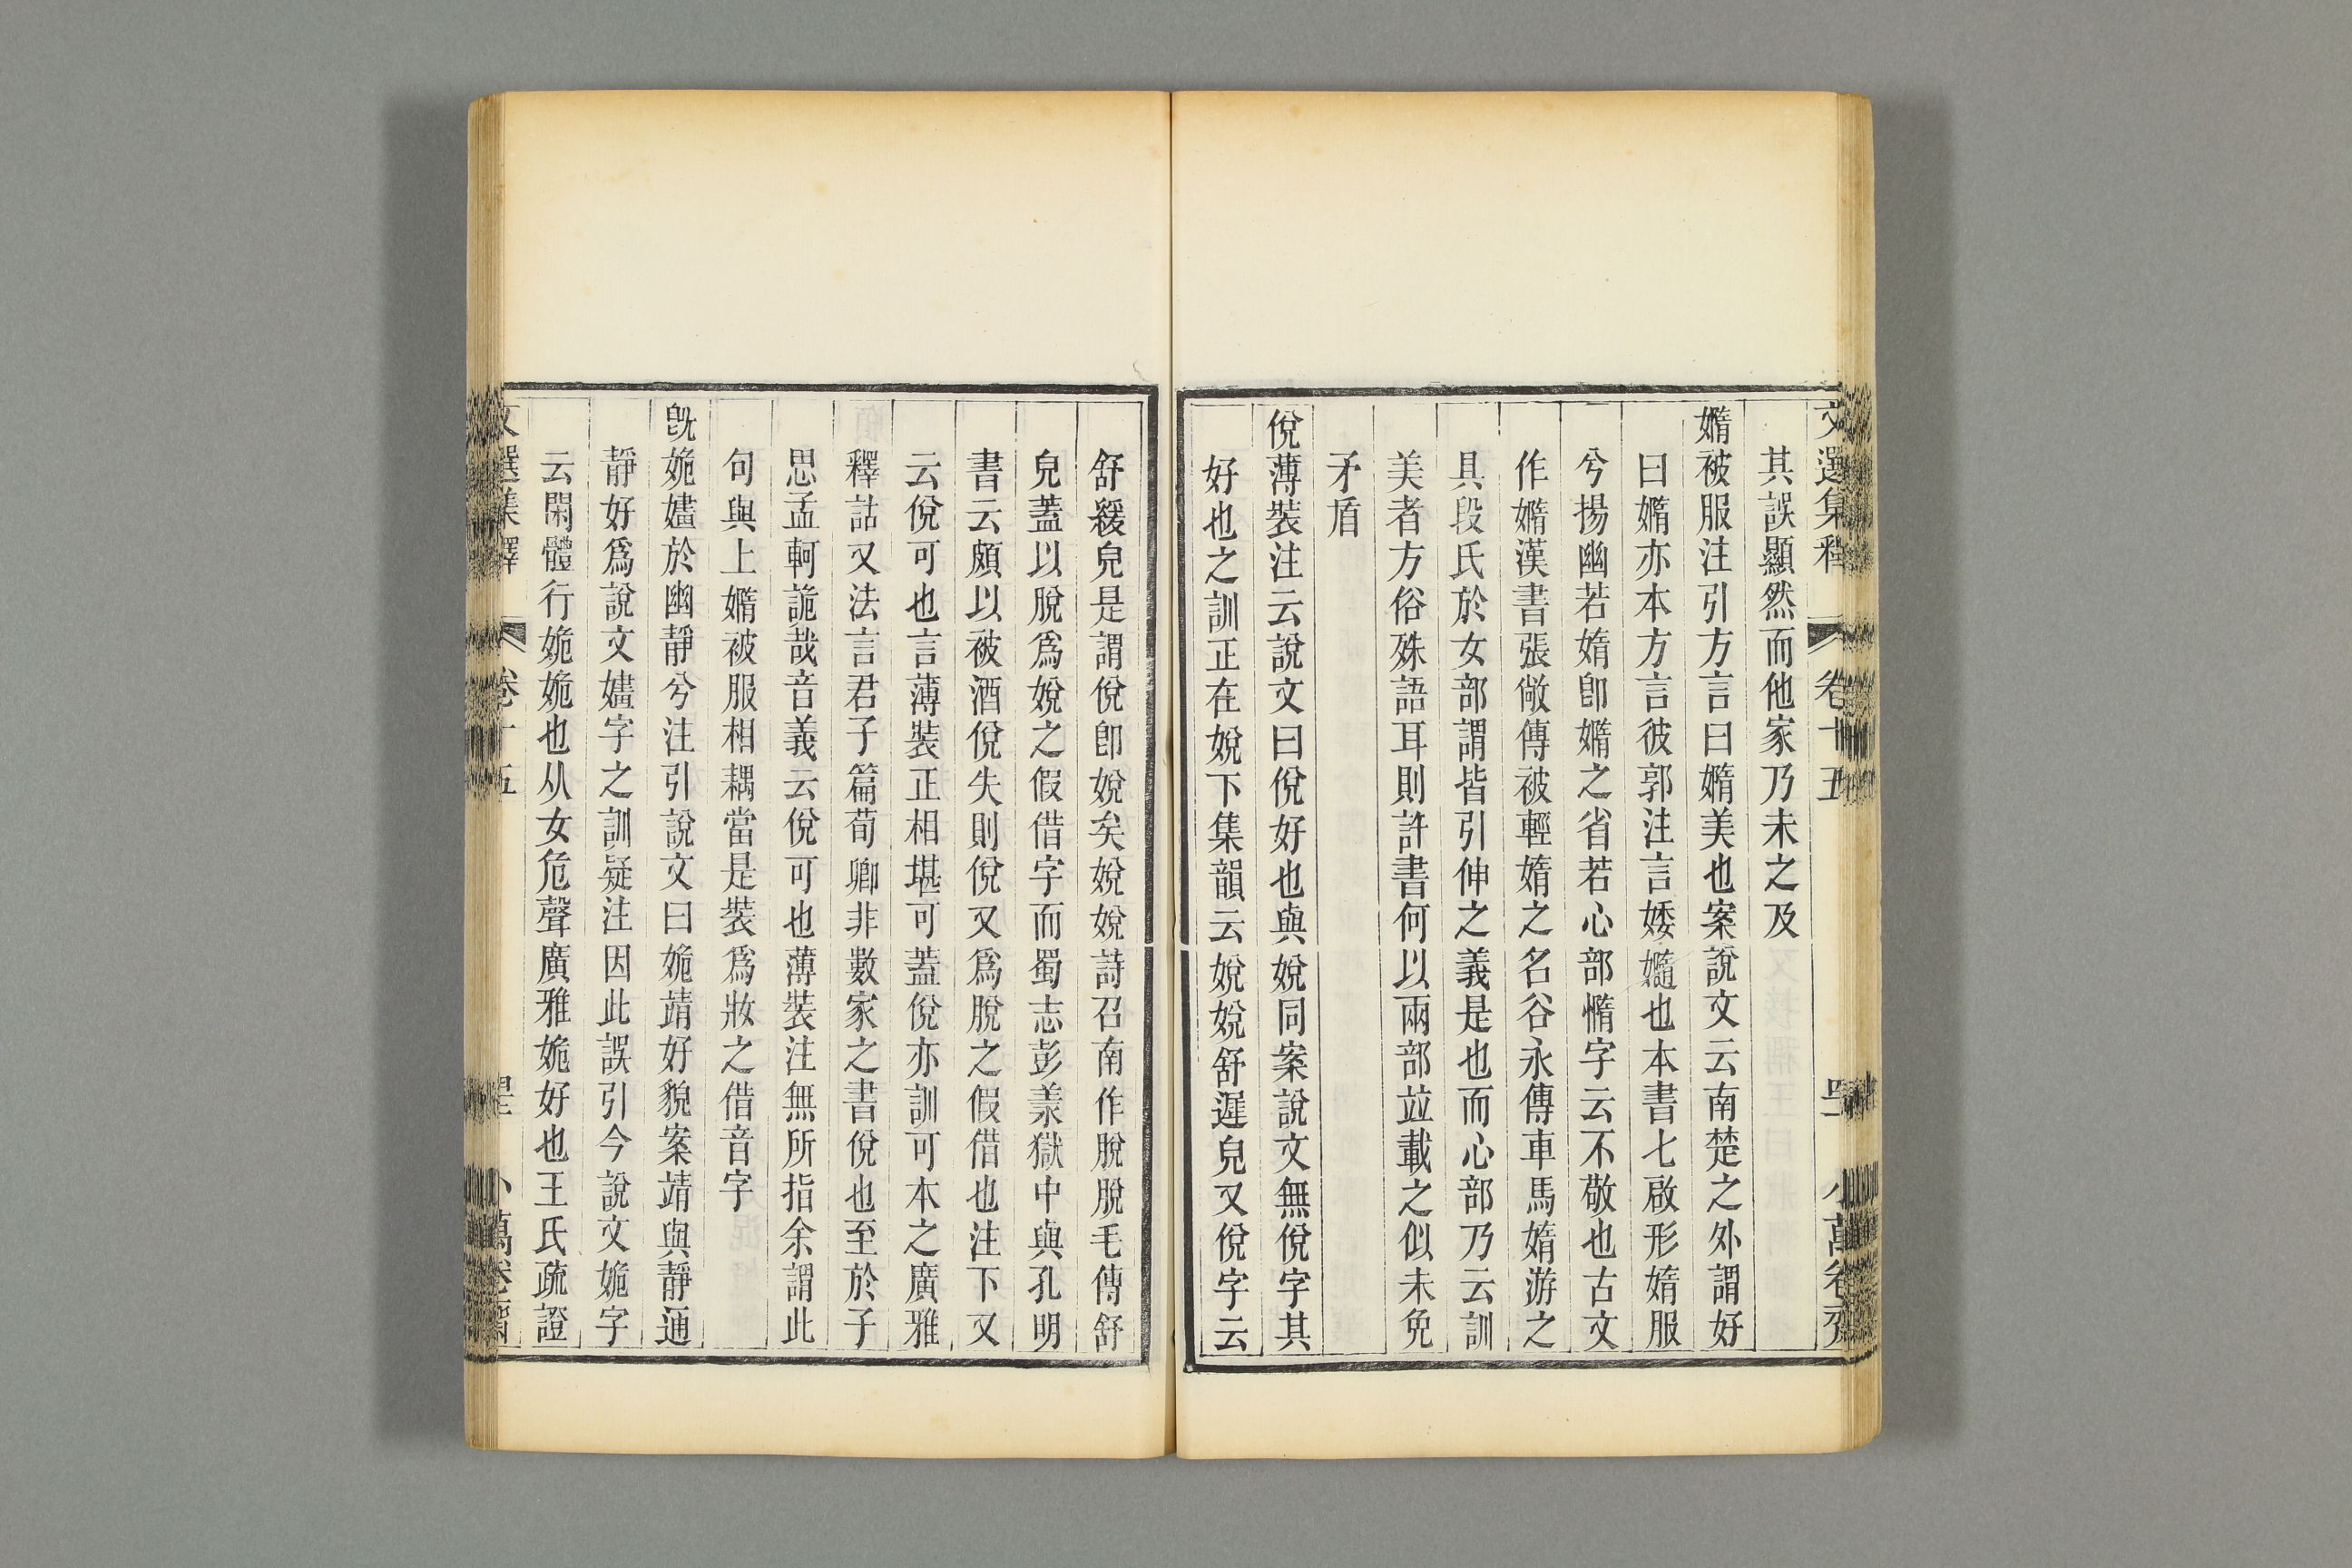 文選集釋 卷十五 小萬卷齋
其誤顯然而他家乃未之及
嫷被服注引方言曰嫷美也案說文云南楚之外謂好
曰嫷亦本方言彼郭注言婑𡤪也本書七啟形媠服
兮揚幽若媠卽嫷之省若心部憜字云不敬也古文
作媠漢書張敞傳被輕媠之名谷永傳車馬媠游之
具段氏於女部謂皆引伸之義是也而心部乃云訓
美者方俗殊語耳則許書何以兩部竝載之似未免
矛盾
侻薄裝注云說文曰侻好也與娧同案說文無侻字其
好也之訓正在娧下集韻云娧娧舒遲皃又侻字云
舒緩皃是謂侻卽娧矣娧娧詩召南作脫脫毛傳舒
皃蓋以脫爲娧之假借字而蜀志彭羕獄中與孔明
書云頗以被酒侻失則侻又爲脫之假借也注下又
云侻可也言薄裝正相堪可蓋侻亦訓可本之廣雅
釋詁又法言君子篇荀卿非數家之書侻也至於子
思孟軻詭哉音義云侻可也薄裝注無所指余謂此
句與上嫷被服相耦當是裝爲妝之借音字
旣姽嫿於幽靜兮注引說文曰姽靖好貌案靖與靜通
靜好爲說文嫿字之訓疑注因此誤引今說文姽字
云閑體行姽姽也从女危聲廣雅姽好也王氏疏證
文選集釋 卷十五 小萬卷齋